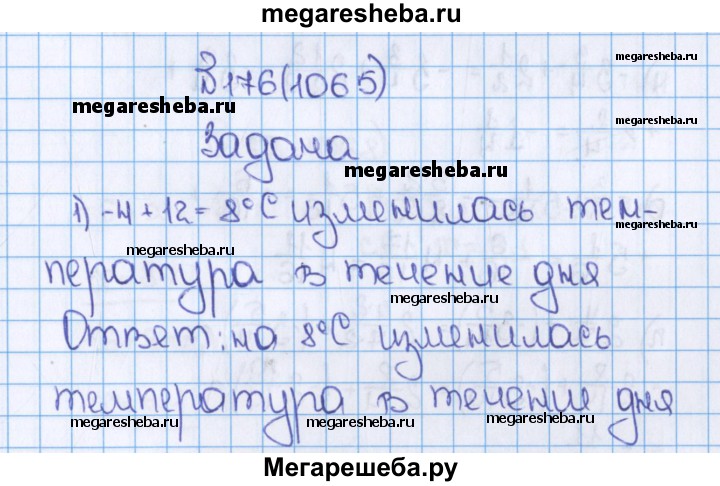 megaresheba.ru
megaresheba.ru
№176(1065)
megaresheba.ru
megaresheba.ru
Задача
megaresheba.ru
1) -4 + 12 = 8°С изменилась тем-
megaresheba.ru
пература в течение дня
megaresheba.ru
Ответ: на 8°С изменилась
температура в течение дня
megaresheba.ru megaresheba.ru megaresheba.ru
Мегарешеба.ру